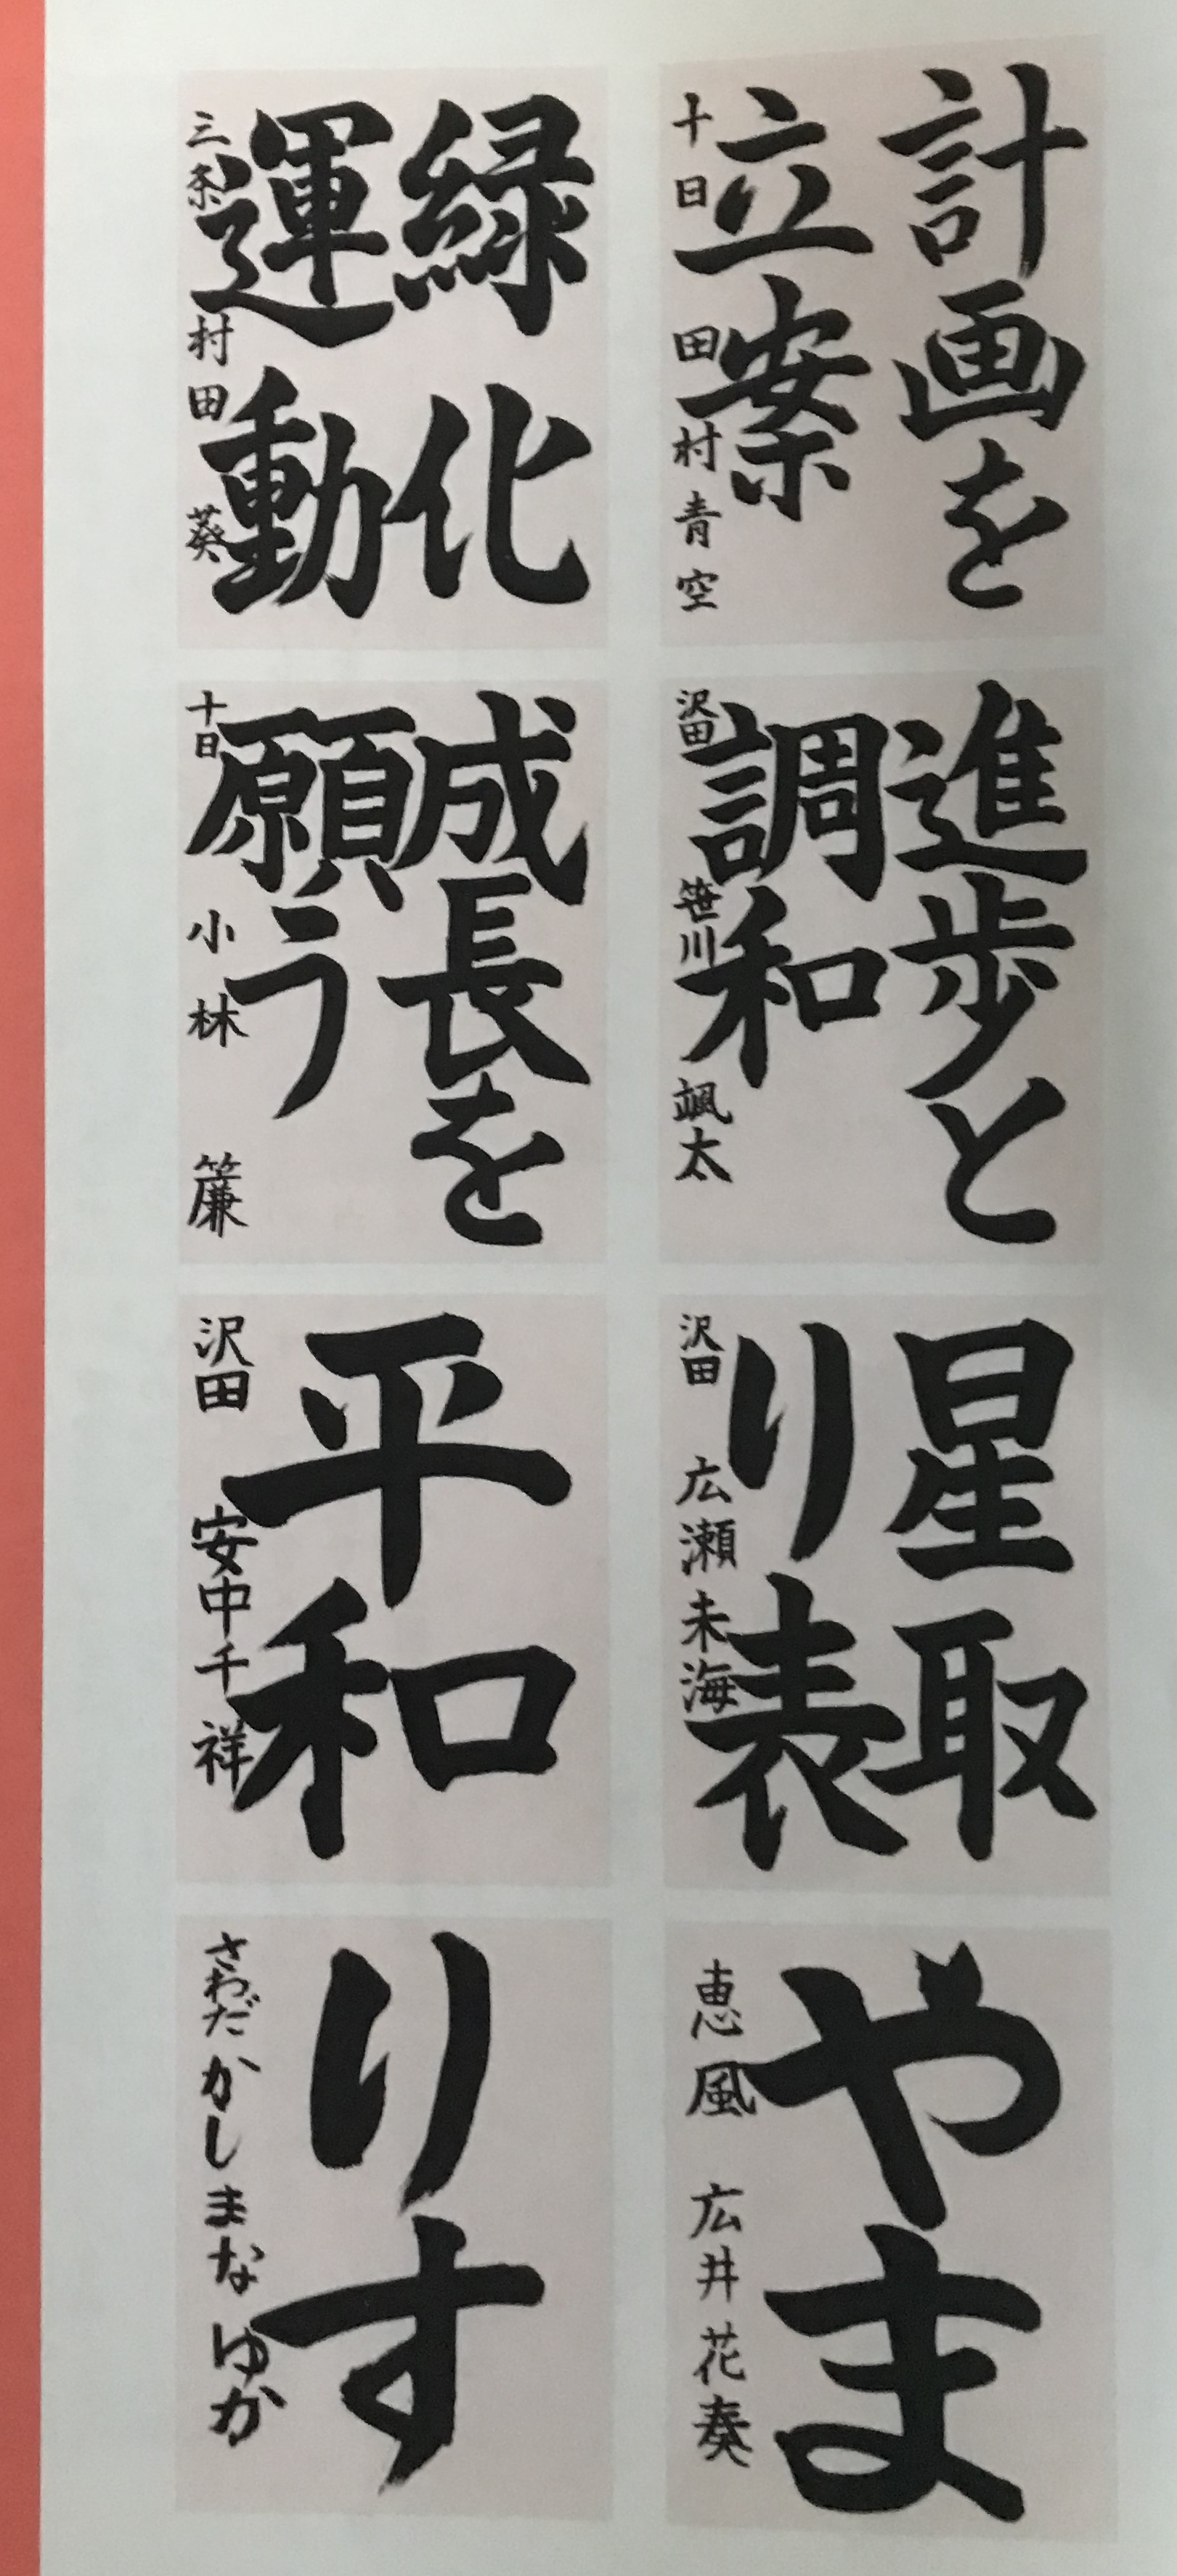 計画を
立案
十日 田村青空
緑化
運動
三条 村田 葵
進歩と
調和
沢田 笹川颯太
成長を
願う
十日 小林 簾
星取
り表
沢田 広瀬未海
平和
沢田 安中千祥
やま
恵風 広井花奏
りす
さわだ かしまなゆか